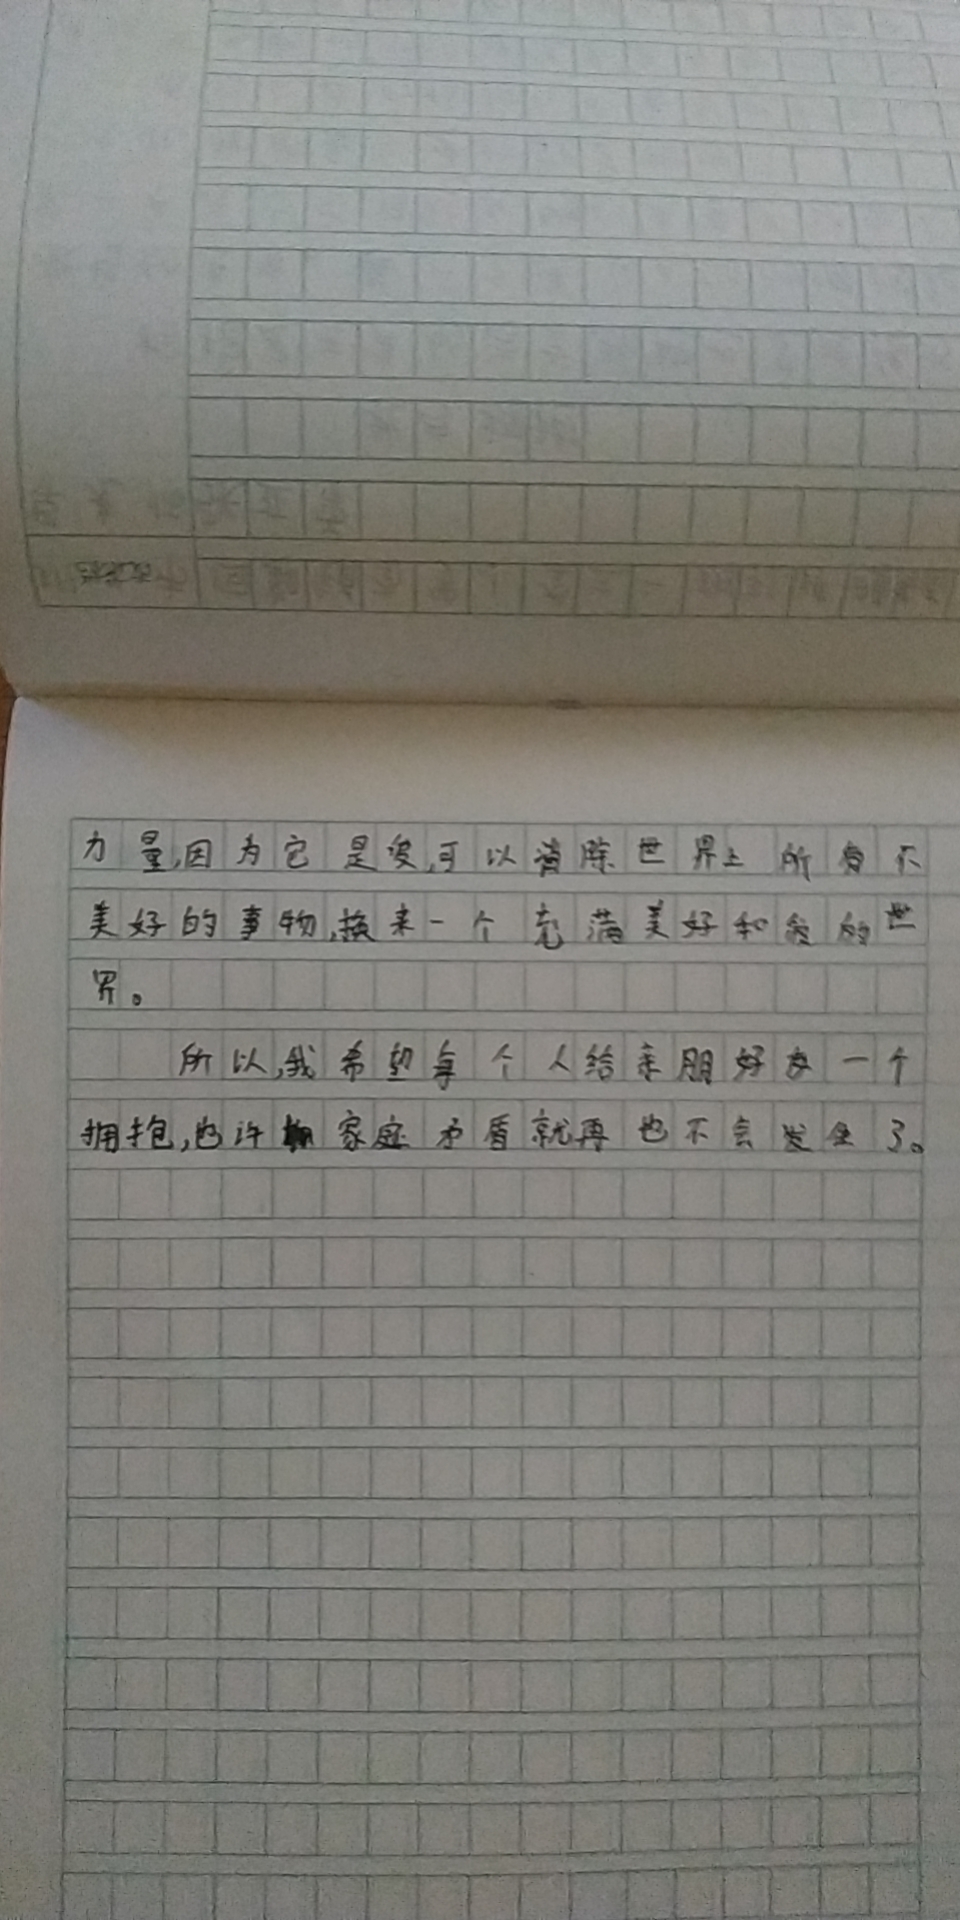 力量,因为它是爱,可以消除世界上所有不
美好的事物,换来一个充满美好和爱的世
界。
所以,我希望每个人给亲朋好友一个
拥抱,也许家庭矛盾就再也不会发生了。